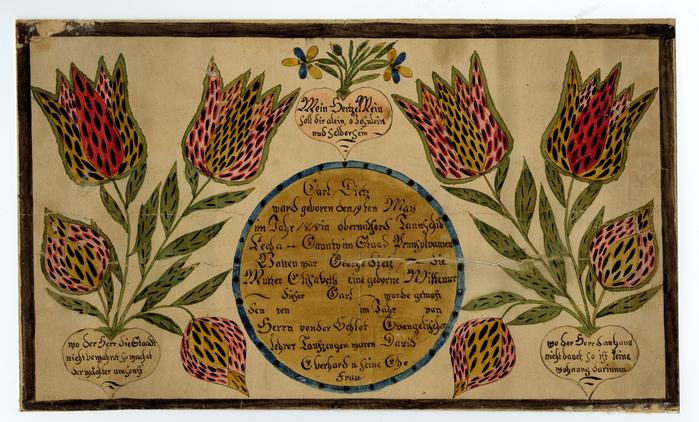 Mein Hertze Mein
soll dir alein, o
und selber sein
Carl Dietz
ward geboren den 19 ten May
im Jahr 1818 in obermilford Taunschib
Lecha - Caunty im Staad Pennsylvanien
Vatter war George Dietz die
Mutter Elisabeth eine geborne
dieser Carl wurde getauft
den ten im Jahr von
Herrn von der Schlot Evangelischer
lehrer Taufzeugen waren David
Eberhard u seine Ehe
Frau
wo der Herr die Staadt
nicht bewahret so wachet
der wächter umsonst
wo der Herr das haus
nicht bauet, so ist keine
wohnung darinnen